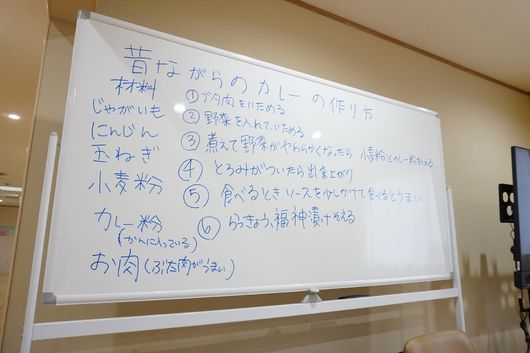 昔ながらのカレーの作り方
材料
じゃがいも
にんじん
玉ねぎ
小麦粉
カレー粉
(かんに入っている)
お肉(ぶた肉がうまい)
①ブタ肉をいためる
②野菜を入れていためる
③煮えて野菜がやわらかくなったら 小麦粉とカレー粉を入れる
④とろみがついたら出来上がり
⑤食べるときソースを少しかけて食べるとうまい
⑥らっきょう、福神漬けそえる